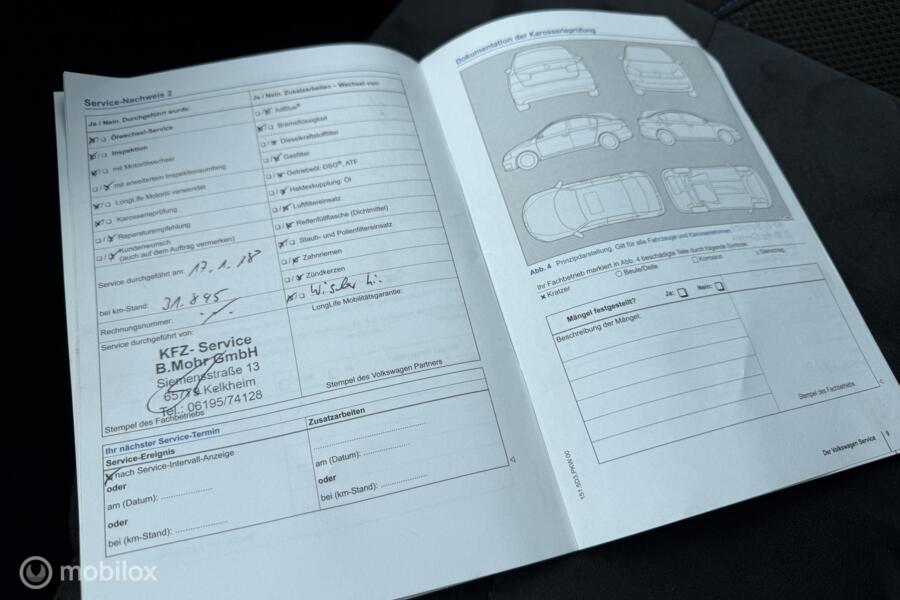 Service-Nachweis 2
Ja / Nein. Durchgeführt wurde:
Ölwechsel-Service
Inspektion
mit Motorölwechsel
mit erweitertem Inspektionsumfang
LongLife Motoröl verwendet
Karosserieprüfung
Reparaturempfehlung
Kundenwunsch
(auch auf dem Auftrag vermerken)
Service durchgeführt am: 17.1.18
bei km-Stand: 31.845
Rechnungsnummer:
Service durchgeführt von:
KFZ- Service
B.Mohr GmbH
Siemensstraße 13
65779 Kelkheim
Tel.: 06195/74128
Stempel des Fachbetriebs
Ja / Nein. Zusatzarbeiten – Wechsel von:
AdBlue®
Bremsflüssigkeit
Dieselkraftstofffilter
Gasfilter
Getriebeöl: DSG®, ATF
Haldexkupplung: Öl
Luftfiltereinsatz
Reifenfüllflasche (Dichtmittel)
Staub- und Pollenfiltereinsatz
Zahnriemen
Zündkerzen
LongLife Mobilitätsgarantie:
Stempel des Volkswagen Partners
Ihr nächster Service-Termin
Service-Ereignis
nach Service-Intervall-Anzeige
oder
am (Datum): ....................
oder
bei (km-Stand): ....................
Zusatzarbeiten
am (Datum): ....................
oder
bei (km-Stand): ....................
Dokumentation der Karosserieprüfung
Abb. 4 Prinzipdarstellung. Gilt für alle Fahrzeuge und Karosserieformen.
Ihr Fachbetrieb markiert in Abb. 4 beschädigte Teile durch folgende Symbole:
× Kratzer ○ Beule/Delle □ Korrosion ∆ Steinschlag
Mängel festgestellt? Ja: Nein:
Beschreibung der Mängel:
Stempel des Fachbetriebs
151.5D3.PKW.00
Der Volkswagen Service 9
mobilox